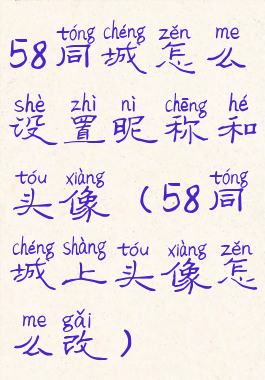 tóng chéng zěn me
58同城怎么
shè zhì nì chēng hé
设置昵称和
tóu xiàng tóng
头像（58同
chéng shàng tóu xiàng zěn
城上头像怎
me gǎi
么改）